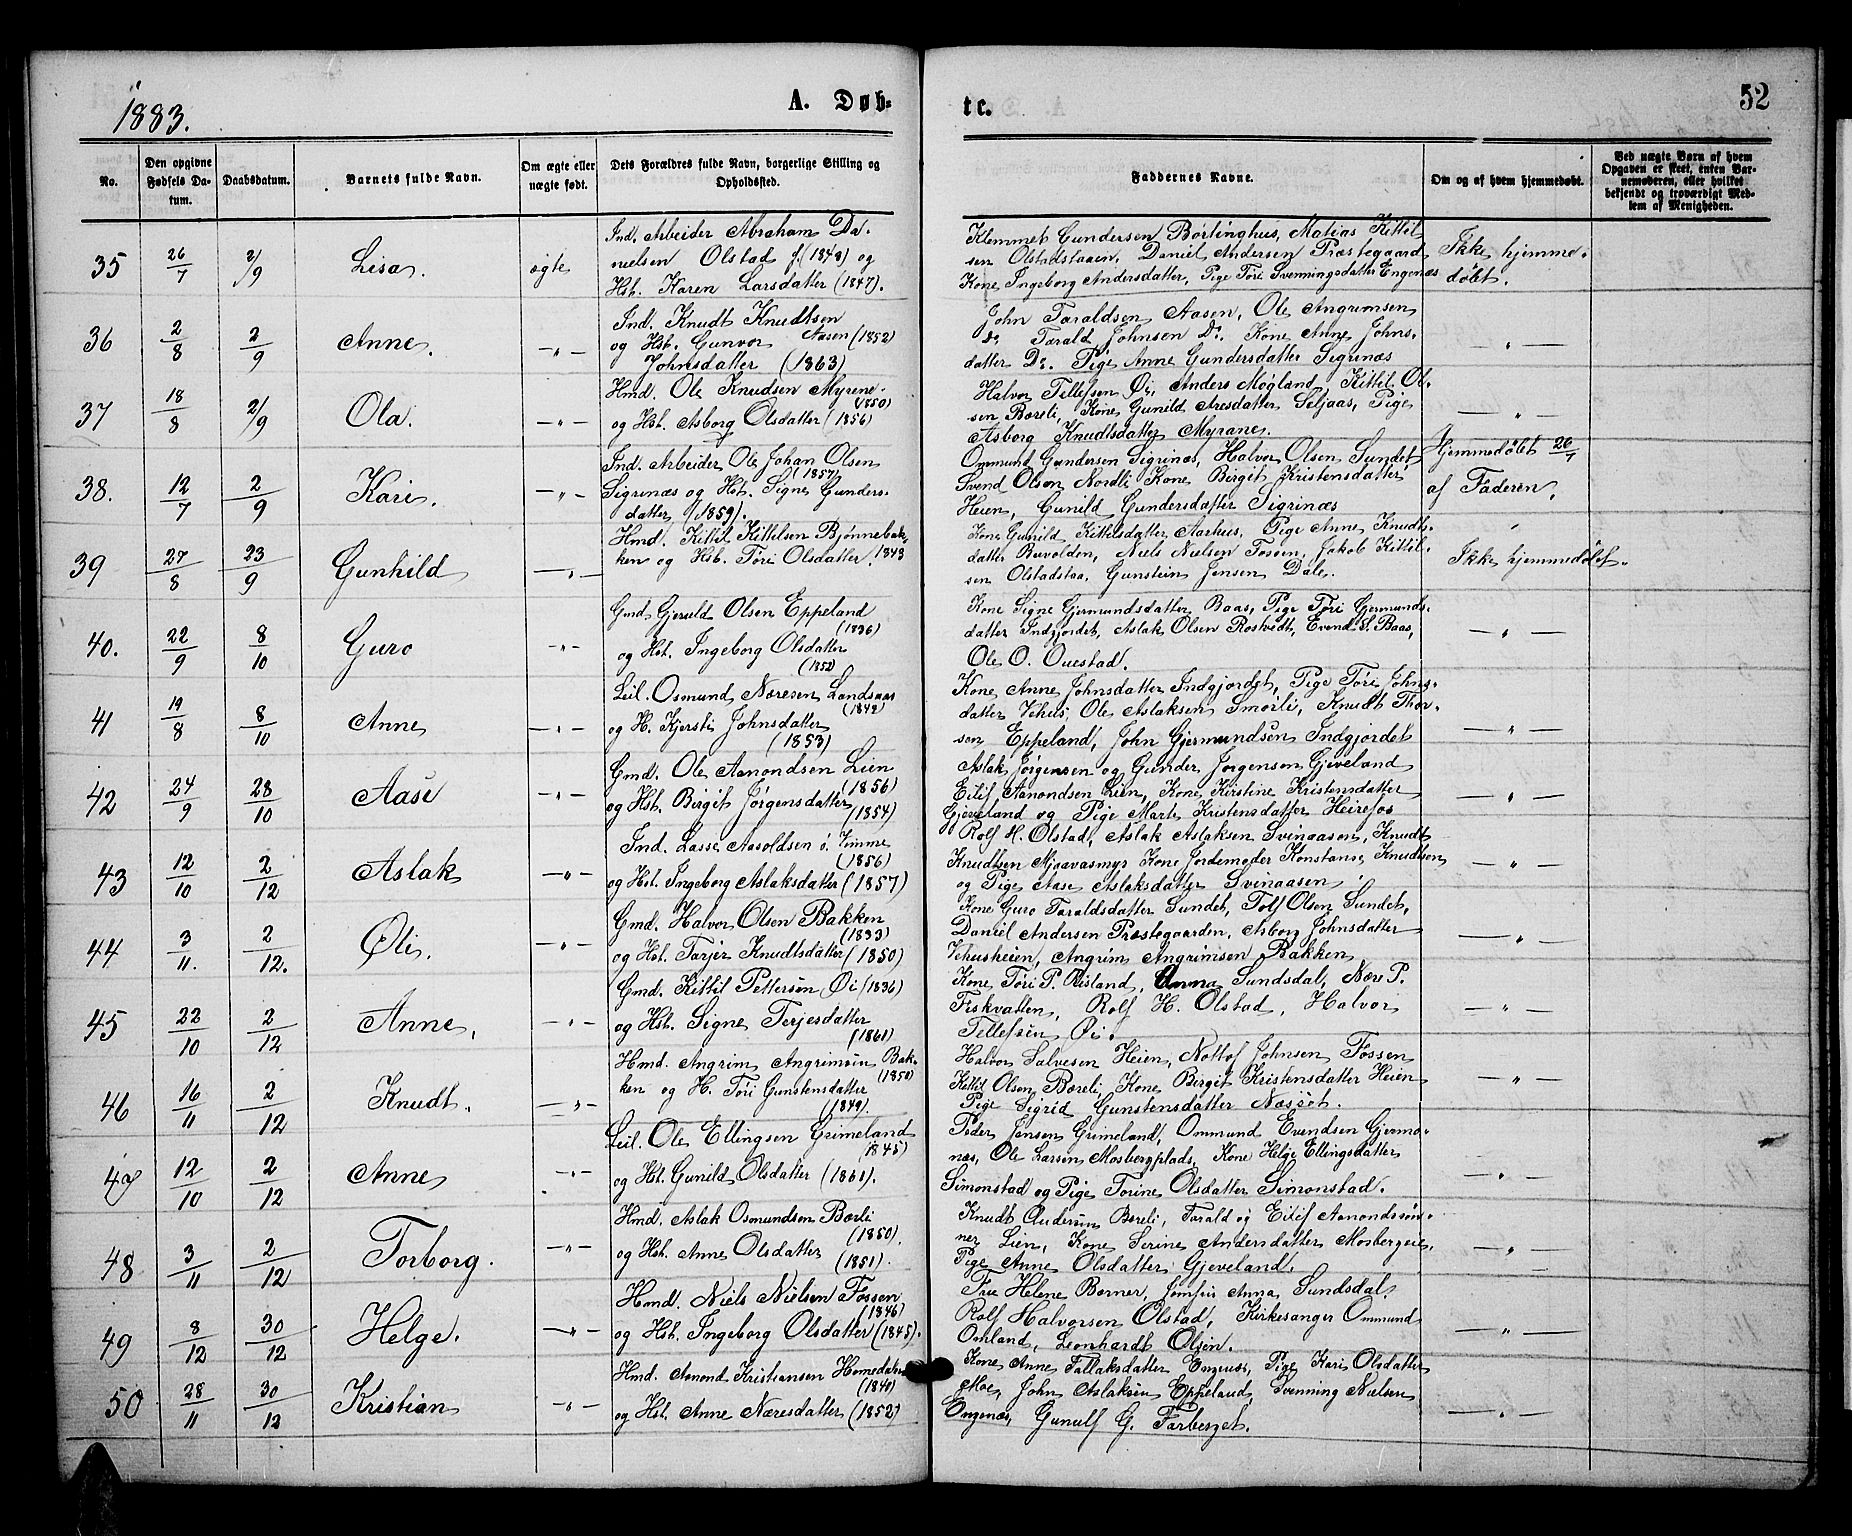 1883.
A. Døb=
te.
52
No.
Den opgivne Fødsels Da-tum.
Daabsdatum.
Barnets fulde Navn.
Om ægte eller uægte født.
Dets Forældres fulde Navn, borgerlige Stilling og Opholdssted.
Faddernes Navne.
Om og af hvem hjemmedøbt.
Ved uægte Børn af hvem Opgaven er skeet, enten Bar-nemoderen, eller hvilket bekjendt og troværdigt Med-lem af Menigheden.
35 26/7 2/9 Lisa. ægte
Ind. Arbeider Abraham Da-
nielsen Olstad f. (1848) og
Hst. Karen Larsdatter (1847).
Klemmet Gundersen Børtinghus, Matias Kittil-
sen Olstadstaaen, Daniel Andersen Præstegaard
Kone Ingeborg Andersdatter, Pige Tori Svenningsdatter Engenæs
Ikke hjemme-
døbt.
36 2/8 2/9 Anne. —„—
Ind. Knudt Knudtsen
og Hst. Gunvor Aasen (1852)
Johnsdatter (1863)
John Taraldsen Aasen, Ole Angrimsen
Do Tarald Johnsen Do. Kone Anne Johns-
datter Do. Pige Anne Gundersdatter Sigrinæs
—„—
37 18/8 2/9 Ola. —„—
Hmd. Ole Knudsen Myrene
(1850)
og Hst. Asborg Olsdatter (1856)
Halvor Tellefsen Øi, Anders Mogland, Kittil Ol-
sen Boreli, Kone Gunild Aresdatter Seljaas, Pige
Asborg Knudtsdatter Myrane.
—„—
38. 12/7 2/9 Kari. —„—
Ind. Arbeider Ole Johan Olsen
(1857)
Sigrinæs og Hst. Signe Gunders-
datter (1859).
Ommund Gundersen Sigrinæs, Halvor Olsen Sundet
Svend Olsen Nordli Kone Birgit Kristensdatter
Heien, Gunild Gundersdatter Sigrinæs
Hjemmedøbt 20/7
af Faderen.
39 27/8 23/9 Gunhild —„—
Hmd. Kittil Kittelsen Bjønnebak
ken og Hst. Tøri Olsdatter. 1843
Kone Gunild Kittilsdatter Aarhus, Pige Anne Knudts-
datter Buvolden, Niels Nielsen Fosen, Jakob Kittil-
sen Olstadstaa, Gunstein Jensen Dale.
Ikke hjemmedøbt.
40. 22/9 8/10 Guro —„—
Gmd Gjeruld Olsen Eppeland
(1836)
og Hst. Ingeborg Olsdatter
(1852)
Kone Signe Gjermundsdatter Baas, Pige Tøri Gjermunds-
datter Indgjordet, Aslak Olsen Rostvedt, Evend S. Baas,
Ole O. Ouestad.
—„—
41 19/8 8/10 Anne —„—
Leil. Osmund Næresen Landsaas
(1842)
og H. Kjersti Johnsdatter
(1853)
Kone Anne Johnsdatter Indgjordet, Pige Tøri Johns-
datter Vehus, Ole Aslaksen Smorli, Knudt Thor-
sen Eppeland, John Gjermundsen Indgjordet
—„—
42 24/9 28/10 Aase —„—
Gmd. Ole Aanondsen Lien
(1856)
og Hst. Birgit Jørgensdatter
(1854)
Aslak Jørgensen og Gunder Jorgensen Gjeveland
Eilif Aanondsen Lien, Kone Kirstine Kristensdatter
Gjeveland og Pige Marte Kristensdatter Heirefos
—„—
43 12/10 2/12 Aslak —„—
Ind. Lasse Aasoldsen ø. Timme
(1856)
og Hst. Ingeborg Aslaksdatter (1857)
Rolf H. Olstad, Aslak Aslaksen Svinaasen, Knudt
Knudtsen Mjaavasmyr Kone Jordemoder Konstanse Knudtsen
og Pige Aase Aslaksdatter Svinaasen.
—„—
44 3/11. 2/12. Øli. —„—
Gmd. Halvor Olsen Bakken
(1833)
og Hst. Tarjer Knudtsdatter (1850)
Kone Guro Taraldsdatter Sundet, Tolf Olsen Sundet,
Daniel Andersen Præstegaarden, Asborg Johnsdatter
Vehusheien, Angrim Angrimsen Bakken
—„—
45 22/10 2/12 Anne, —„—
Gmd. Kittil Pettersen Øi (1836)
og Hst. Signe Terjesdatter
(1861)
Kone Tøri P. Risland, Anna Sundsdal, Nære P.
Fiskvatten, Rolf H. Olstad, Halvor
Tellefsen Øi.
—„—
46 16/11 2/12 Knudt. —„—
Hmd. Angrim Angrimsen Bak-
ken og H. Tøri Gunstensdatter (1850)
(1849)
Halvor Salvesen Heien, Nottof Johnsen Fossen
Kittil Olsen Boreli, Kone Birgit Kristensdatter Heien
Pige Sigrid Gunstensdatter Næsset.
—„—
47 12/10 2/12 Anne —„—
Leil. Ole Ellingsen Grimeland
(1845)
og Hst. Gunild Olsdatter (1861).
Peder Jensen Grimeland, Ommund Evendsen Gjermo-
næs, Ole Larsen Mosbergplads, Kone Helge Ellingsdatter
Simonstad og Pige Torine Olsdatter Simonstad.
—„—
48 3/11 2/12 Torborg. —„—
Hmd. Aslak Osmundsen Børli
(1850).
og Hst. Anne Olsdatter
(1851).
Knudt Andersen Boreli, Tarald og Eilif Aanondssøn-
ner Lien, Kone Serine Andersdatter Mosbergeie,
Pige Anne Olsdatter Gjeveland.
—„—
49 8/12 30/12 Helge. —„—
Hmd. Niels Nielsen Fossen
(1846)
og Hst. Ingeborg Olsdatter (1845).
Frue Helene Børner, Jomfru Anna Sundsdal,
Rolf Halvorsen Olstad, Kirkesanger Ommund
Omland, Leonhardt Olsen.
—„—
50 28/11 30/12 Kristian —„—
Hmd. Aanond Kristiansen Homedalen
(1840)
og Hst. Anne Næresdatter (1852)
Kone Anne Fallaksdatter Engenæs, Pige Kari Olsdatter
Moe, John Aslaksen Eppeland, Svenning Nielsen
Engenæs, Gunulf G. Farberget.
—„—